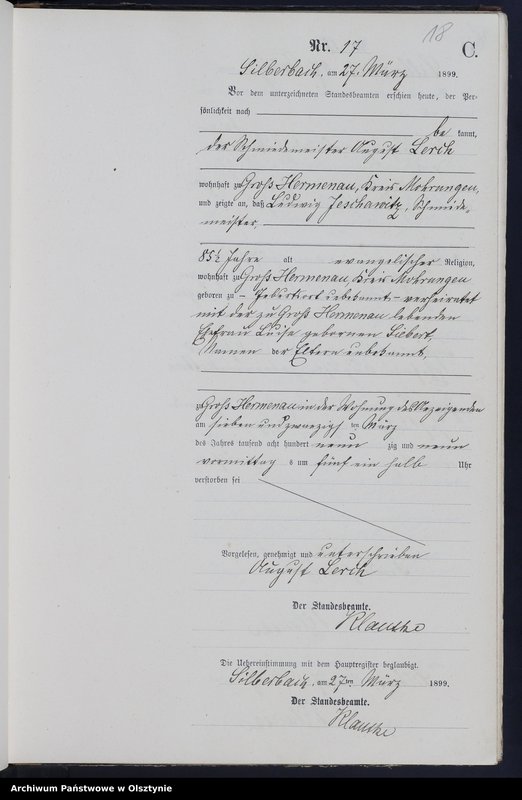 18
Nr. 17
C.
Silberbach, am 27. März 1899.
Vor dem unterzeichneten Standesbeamten erschien heute, der Per-
sönlichkeit nach
be kannt,
der Schmiedemeister August Lerch
wohnhaft zu Groß Hermenau, Kreis Mohrungen,
und zeigte an, daß Ludwig Jeschawitz, Schmiede-
meister,
85½ Jahre alt evangelischer Religion,
wohnhaft zu Groß Hermenau, Kreis Mohrungen
geboren zu – Geburtsort unbekannt – verheiratet
mit der zu Groß Hermenau lebenden
Ehefrau Luise geborenen Siebert,
Namen der Eltern unbekannt,
zu Groß Hermenau in der Wohnung des Anzeigenden
am sieben und zwanzigsten März
des Jahres tausend acht hundert neun zig und neun
vormittags um fünf ein halb Uhr
verstorben sei
Vorgelesen, genehmigt und unterschrieben
August Lerch
Der Standesbeamte.
Klautke
Die Uebereinstimmung mit dem Hauptregister beglaubigt.
Silberbach, am 27ten März 1899.
Der Standesbeamte.
Klautke
Archiwum Państwowe w Olsztynie